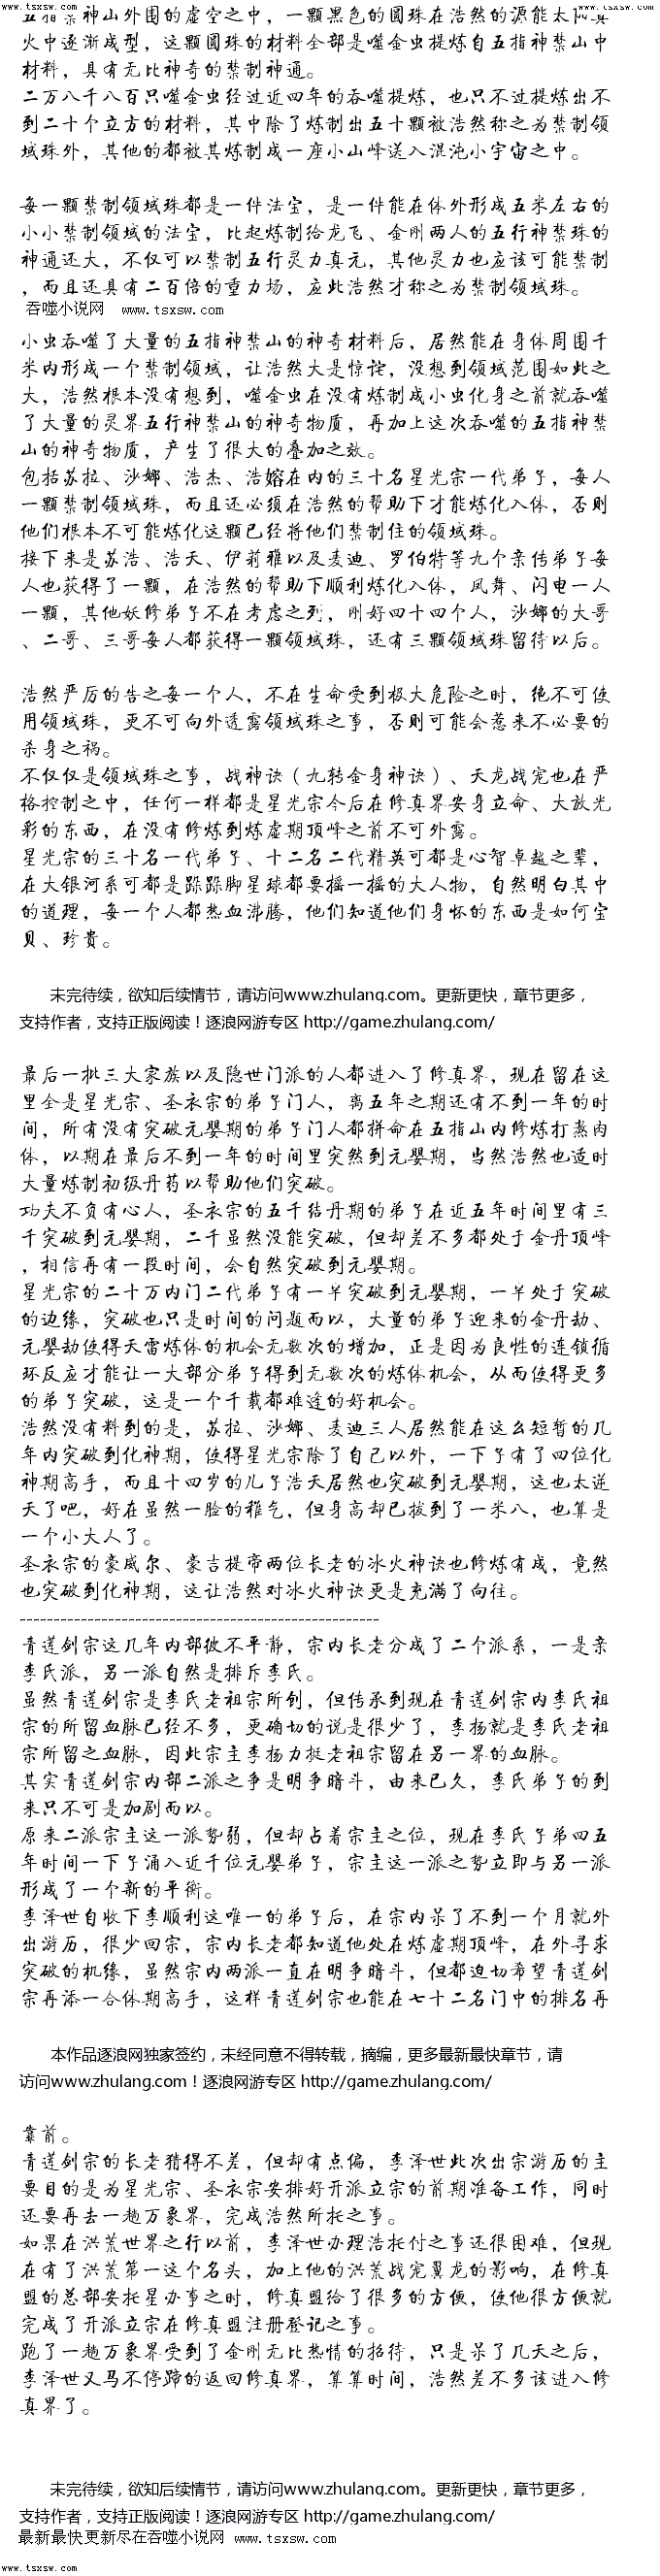 www.tsxsw.com www.tsxsw.com
五指禁神山外围的虚空之中，一颗黑色的圆珠在浩然的源能太阳真
火中逐渐成型，这颗圆珠的材料全部是噬金虫提炼自五指神禁山中
材料，具有无比神奇的禁制神通。
二万八千八百只噬金虫经过近四年的吞噬提炼，也只不过提炼出不
到二十个立方的材料，其中除了炼制出五十颗被浩然称之为禁制领
域珠外，其他的都被其炼制成一座小山峰送入混沌小宇宙之中。
每一颗禁制领域珠都是一件法宝，是一件能在体外形成五米左右的
小小禁制领域的法宝，比起炼制给龙飞、金刚两人的五行神禁珠的
神通还大，不仅可以禁制五行灵力真元，其他灵力也应该可能禁制
，而且还具有二百倍的重力场，应此浩然才称之为禁制领域珠。
吞噬小说网 www.tsxsw.com
小虫吞噬了大量的五指神禁山的神奇材料后，居然能在身体周围千
米内形成一个禁制领域，让浩然大是惊诧，没想到领域范围如此之
大，浩然根本没有想到，噬金虫在没有炼制成小虫化身之前就吞噬
了大量的灵界五行神禁山的神奇物质，再加上这次吞噬的五指神禁
山的神奇物质，产生了很大的叠加之效。
包括苏拉、沙娜、浩杰、浩嫆在内的三十名星光宗一代弟子，每人
一颗禁制领域珠，而且还必须在浩然的帮助下才能炼化入体，否则
他们根本不可能炼化这颗已经将他们禁制住的领域珠。
接下来是苏浩、浩天、伊莉雅以及麦迪、罗伯特等九个亲传弟子每
人也获得了一颗，在浩然的帮助下顺利炼化入体，凤舞、闪电一人
一颗，其他妖修弟子不在考虑之列，刚好四十四个人，沙娜的大哥
、二哥、三哥每人都获得一颗领域珠，还有三颗领域珠留待以后。
浩然严厉的告之每一个人，不在生命受到极大危险之时，绝不可使
用领域珠，更不可向外透露领域珠之事，否则可能会惹来不必要的
杀身之祸。
不仅仅是领域珠之事，战神诀（九转金身神诀）、天龙战宠也在严
格控制之中，任何一样都是星光宗今后在修真界安身立命、大放光
彩的东西，在没有修炼到炼虚期顶峰之前不可外露。
星光宗的三十名一代弟子、十二名二代精英可都是心智卓越之辈，
在大银河系可都是跺跺脚星球都要摇一摇的大人物，自然明白其中
的道理，每一个人都热血沸腾，他们知道他们身怀的东西是如何宝
贝、珍贵。
未完待续，欲知后续情节，请访问www.zhulang.com。更新更快，章节更多，
支持作者，支持正版阅读！逐浪网游专区 http://game.zhulang.com/
最后一批三大家族以及隐世门派的人都进入了修真界，现在留在这
里全是星光宗、圣衣宗的弟子门人，离五年之期还有不到一年的时
间，所有没有突破元婴期的弟子门人都拼命在五指山内修炼打熬肉
体，以期在最后不到一年的时间里突然到元婴期，当然浩然也适时
大量炼制初级丹药以帮助他们突破。
功夫不负有心人，圣衣宗的五千结丹期的弟子在近五年时间里有三
千突破到元婴期，二千虽然没能突破，但却差不多都处于金丹顶峰
，相信再有一段时间，会自然突破到元婴期。
星光宗的二十万内门二代弟子有一半突破到元婴期，一半处于突破
的边缘，突破也只是时间的问题而以，大量的弟子迎来的金丹劫、
元婴劫使得天雷炼体的机会无数次的增加，正是因为良性的连锁循
环反应才能让一大部分弟子得到无数次的炼体机会，从而使得更多
的弟子突破，这是一个千载都难逢的好机会。
浩然没有料到的是，苏拉、沙娜、麦迪三人居然能在这么短暂的几
年内突破到化神期，使得星光宗除了自己以外，一下子有了四位化
神期高手，而且十四岁的儿子浩天居然也突破到元婴期，这也太逆
天了吧，好在虽然一脸的稚气，但身高却已拔到了一米八，也算是
一个小大人了。
圣衣宗的豪威尔、豪吉提帝两位长老的冰火神诀也修炼有成，竟然
也突破到化神期，这让浩然对冰火神诀更是充满了向往。
-----------------------------------------------------
青莲剑宗这几年内部彼不平静，宗内长老分成了二个派系，一是亲
李氏派，另一派自然是排斥李氏。
虽然青莲剑宗是李氏老祖宗所创，但传承到现在青莲剑宗内李氏祖
宗的所留血脉已经不多，更确切的说是很少了，李扬就是李氏老祖
宗所留之血脉，因此宗主李扬力挺老祖宗留在另一界的血脉。
其实青莲剑宗内部二派之争是明争暗斗，由来已久，李氏弟子的到
来只不可是加剧而以。
原来二派宗主这一派势弱，但却占着宗主之位，现在李氏子弟四五
年时间一下子涌入近千位元婴弟子，宗主这一派之势立即与另一派
形成了一个新的平衡。
李泽世自收下李顺利这唯一的弟子后，在宗内呆了不到一个月就外
出游历，很少回宗，宗内长老都知道他处在炼虚期顶峰，在外寻求
突破的机缘，虽然宗内两派一直在明争暗斗，但都迫切希望青莲剑
宗再添一合体期高手，这样青莲剑宗也能在七十二名门中的排名再
本作品逐浪网独家签约，未经同意不得转载，摘编，更多最新最快章节，请
访问www.zhulang.com！逐浪网游专区 http://game.zhulang.com/
靠前。
青莲剑宗的长老猜得不差，但却有点偏，李泽世此次出宗游历的主
要目的是为星光宗、圣衣宗安排好开派立宗的前期准备工作，同时
还要再去一趟万象界，完成浩然所托之事。
如果在洪荒世界之行以前，李泽世办理浩托付之事还很困难，但现
在有了洪荒第一这个名头，加上他的洪荒战宠翼龙的影响，在修真
盟的总部安托星办事之时，修真盟给了很多的方便，使他很方便就
完成了开派立宗在修真盟注册登记之事。
跑了一趟万象界受到了金刚无比热情的招待，只是呆了几天之后，
李泽世又马不停蹄的返回修真界，算算时间，浩然差不多该进入修
真界了。
未完待续，欲知后续情节，请访问www.zhulang.com。更新更快，章节更多，
支持作者，支持正版阅读！逐浪网游专区 http://game.zhulang.com/
最新最快更新尽在吞噬小说网 www.tsxsw.com
www.tsxsw.com